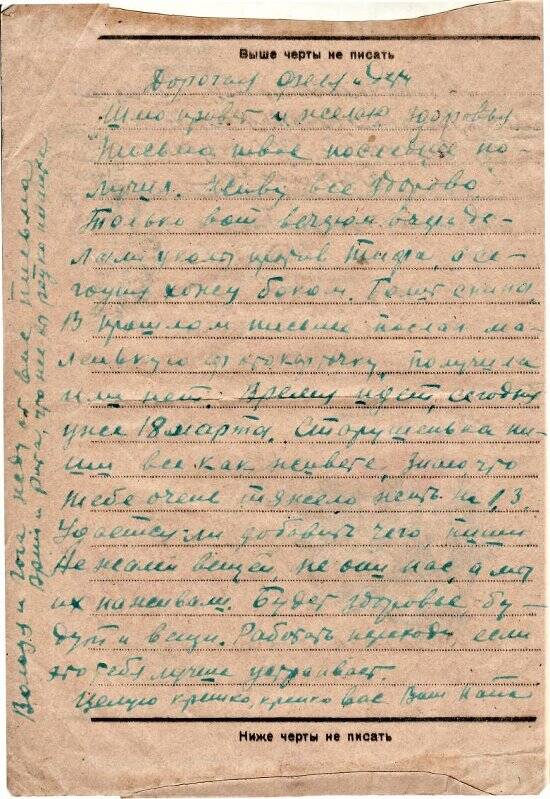 Выше черты не писать
Дорогая и
Шлю привет и желаю здоровья
Письма твое последнее по-
лучил. Живу все здорово
Только вот вечером вчера де-
лали укол против тифа, а се-
годня хожу боком. Болит спина.
В прошлом письме послал ма-
ленькую фотокарточку, получила
или нет. Время идет, сегодня
уже 18 марта. Старушенька пи-
ши все как живете. Знаю что
тебе очень тяжело жить на 1,3.
Удается ли добавить чего, пиши
Не жалей вещей, не они нас, а мы
их наживали. Будет здоровье, бу-
дут и вещи. Работать переходи, если
это тебя лучше устраивает.
Целую крепко, крепко вас Ваш Папа
Ниже черты не писать
Вова и Гога жду от вас письма
и Рита, что же вы редко пишите